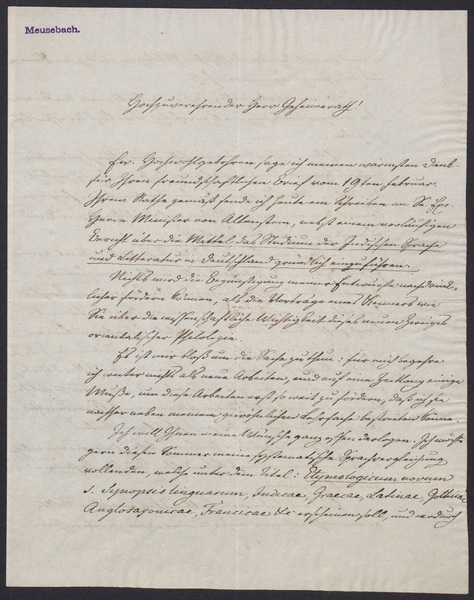 Meusebach.
Hochzuverehrender Herr Geheimerath!
Ew. Hochwohlgebohren sage ich meinen wärmsten Dank
für Ihren freundschaftlichen Brief vom 19ten Februar.
Ihrem Rathe gemäß sende ich heute ein Schreiben an Se. Exc.
Herrn Minister von Altenstein, nebst einem vorläufigen
Bericht über die Mittel das Studium der Indischen Sprache
und Litteratur in Deutschland gründlich einzuführen.
Nichts wird die Begünstigung meiner Entwürfe nachdrück-
licher fördern können, als die Vorträge eines Kenners wie
Sie über die wissenschaftliche Wichtigkeit dieses neuen Zweiges
orientalischer Philologie.
Es ist mir bloß um die Sache zu thun: für mich begehre
ich weiter nichts als neue Arbeiten, und auf eine Zeitlang einige
Muße, um diese Arbeiten erst so weit zu fördern, daß ich sie
nachher neben meinem gewöhnlichen Lehrfache bestreiten könne.
Ich will Ihnen meine Wünsche ganz offen darlegen. Ich möchte
gern diesen Sommer meine systematische Sprachvergleichung
vollenden, welche unter dem Titel: Etymologicum novum
s. Synopsis linguarum, Indicae, Graecae, Latinae, Gothicae
Anglosaxonicae, Francicae &c erscheinen soll, und wodurch